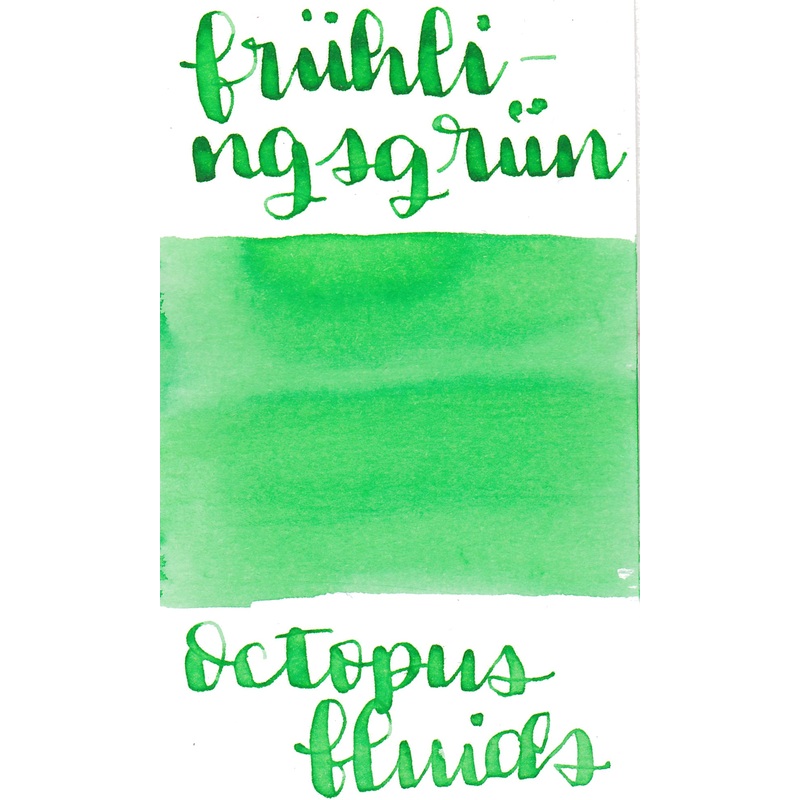 frühli-
ngsgrün
octopus
fluids